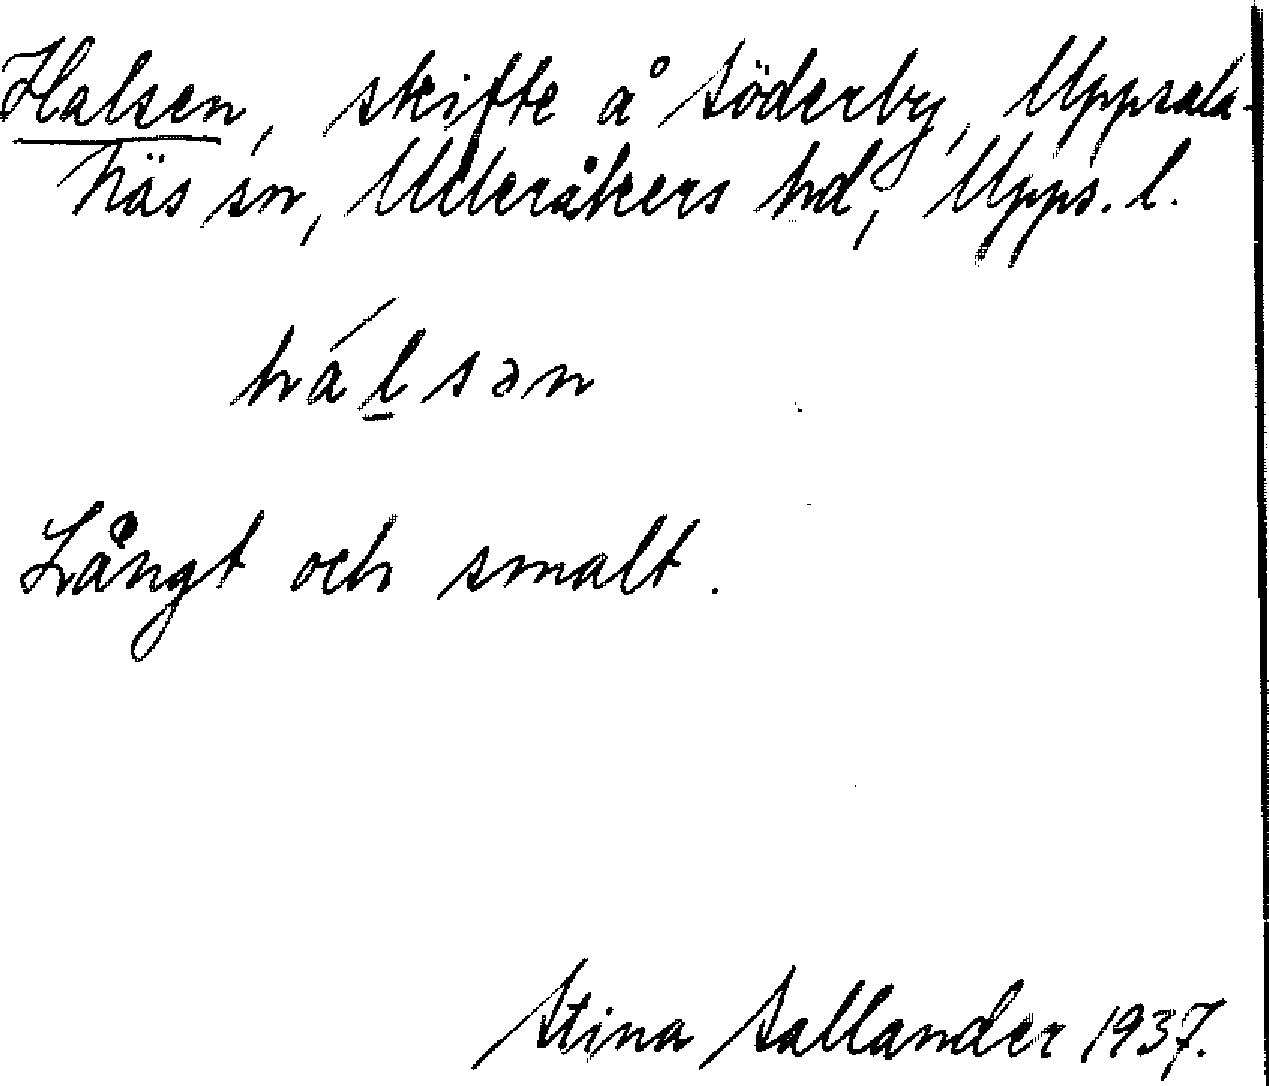 Halsen, skifte å Söderby, Uppsala-
näs sn, Ulleråkers hd, Upps. l.
hálsən
Långt och smalt.
Stina Sallander 1937.